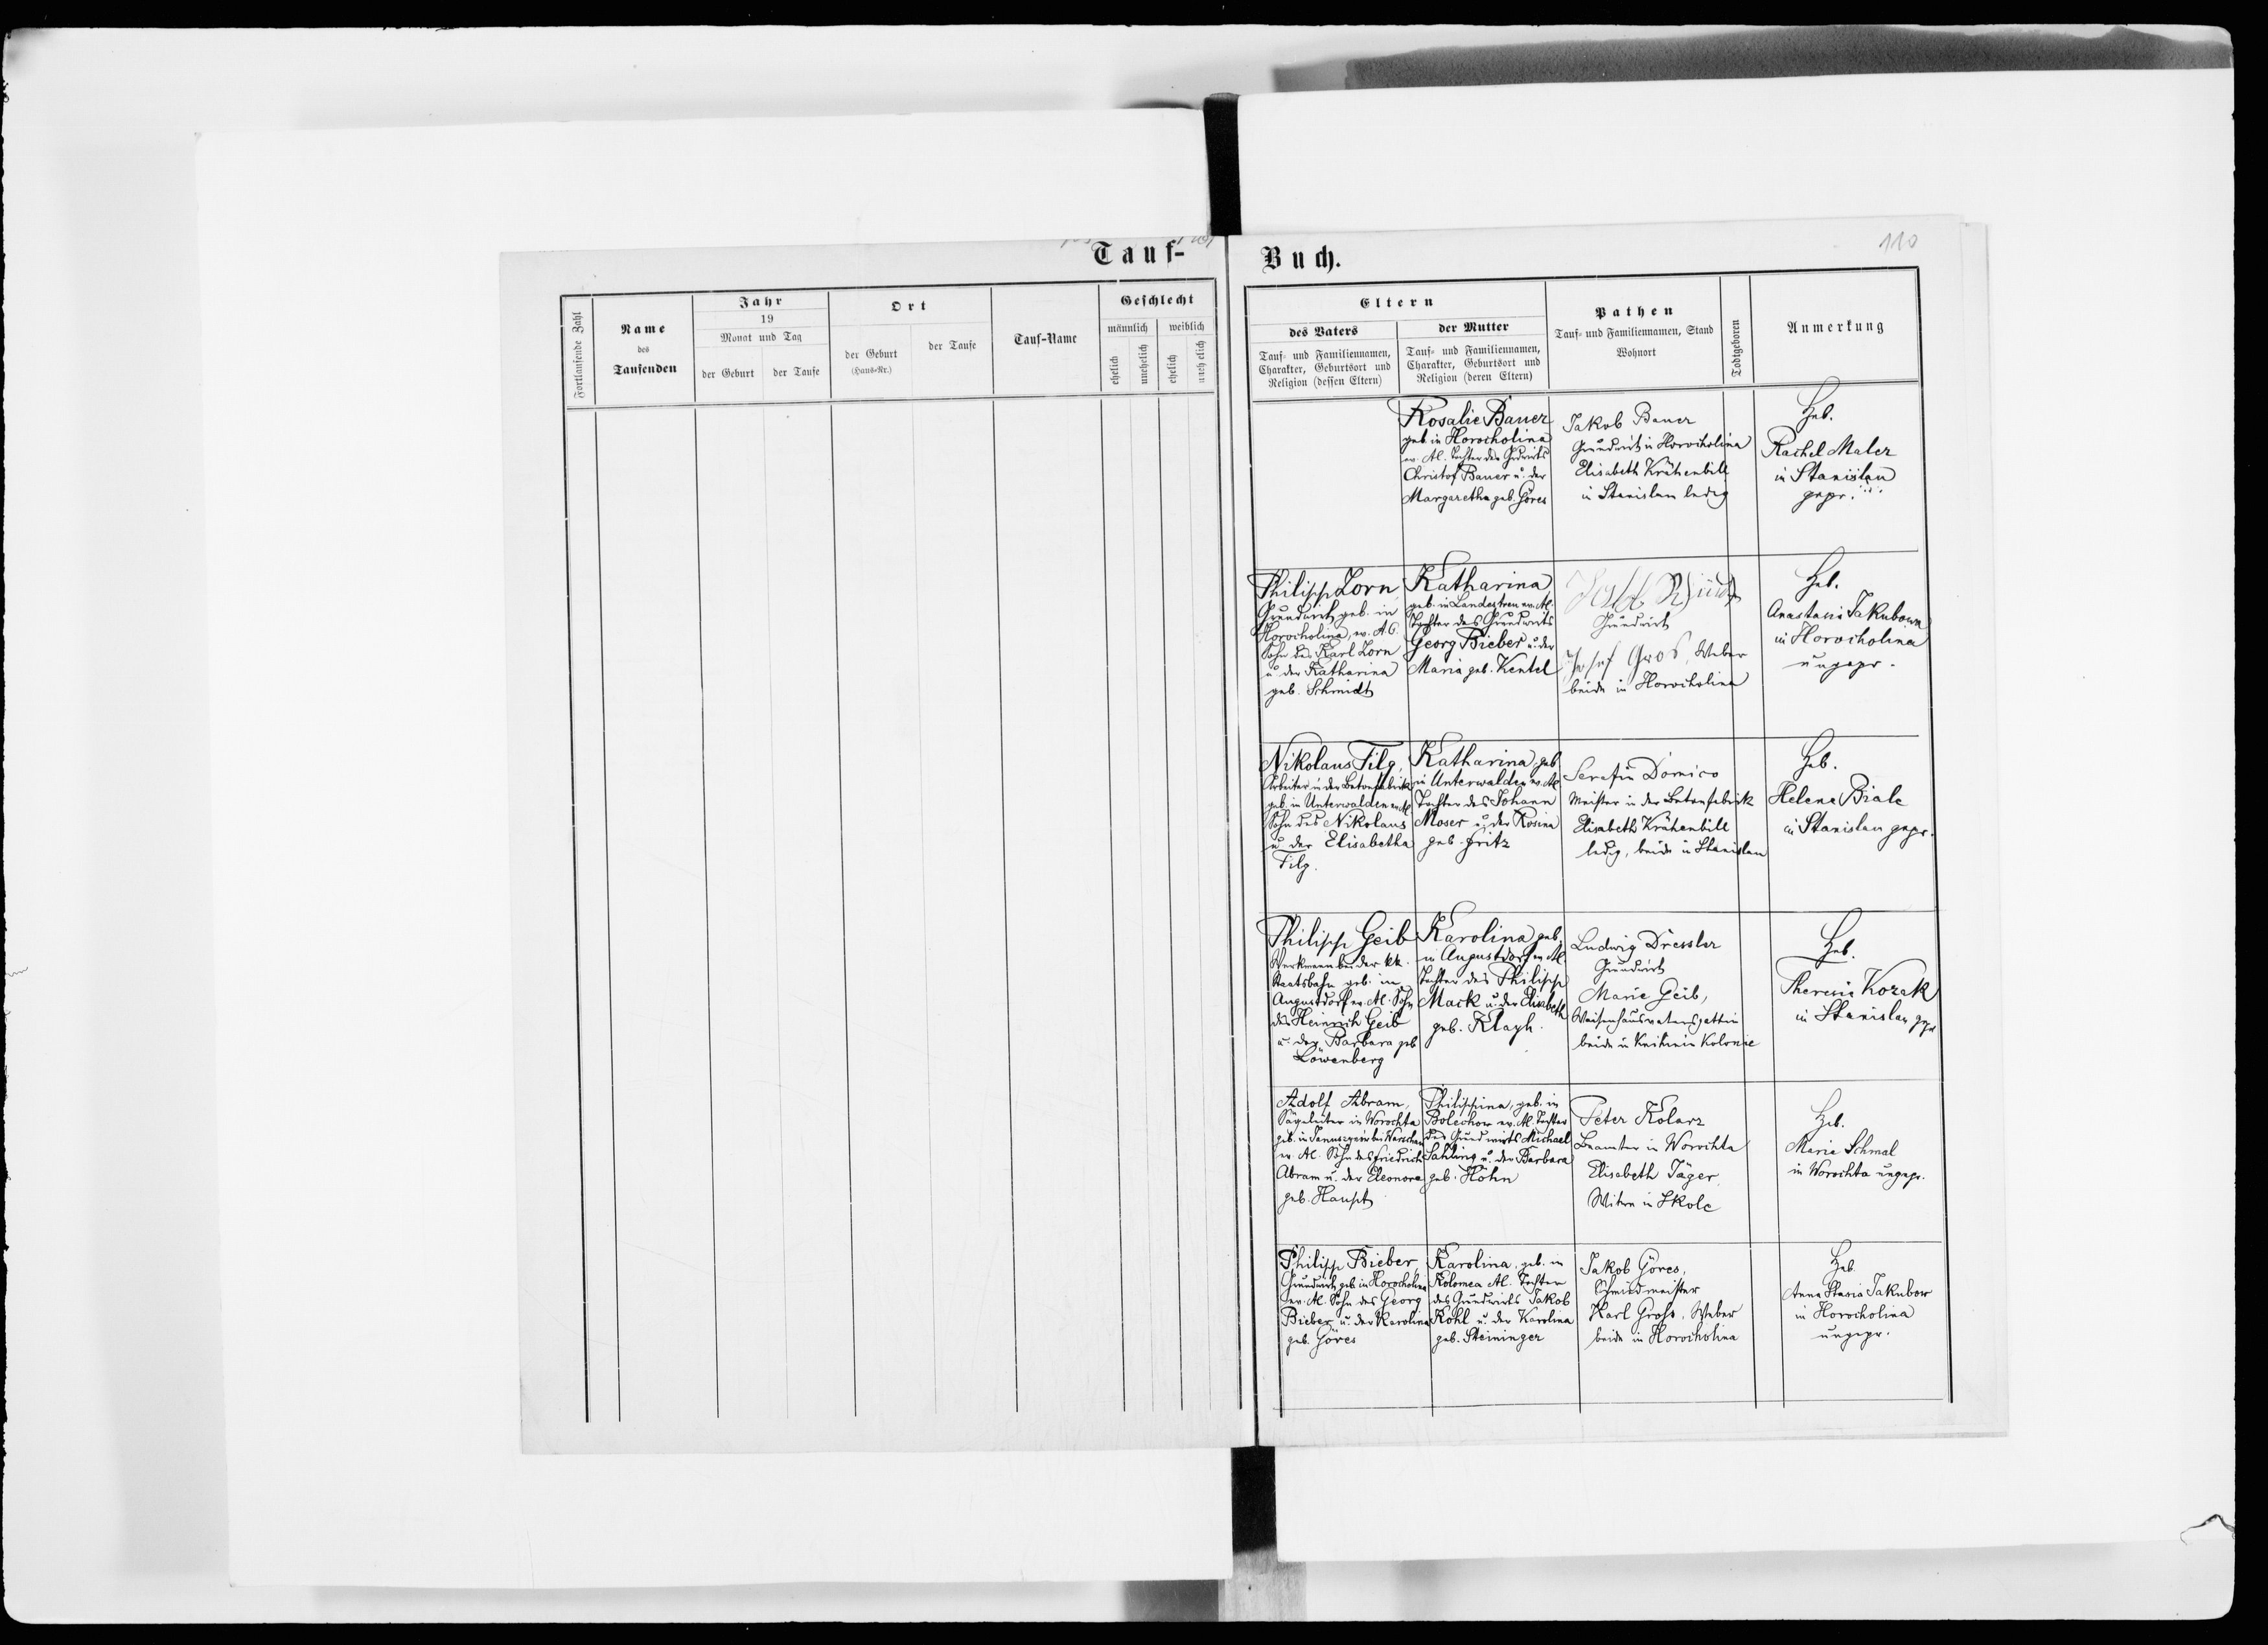 Tauf-
Fortlaufende Zahl
Name
des
Taufenden
Jahr
19
Monat und Tag
der Geburt
der Taufe
Ort
der Geburt
(Haus-Nr.)
der Taufe
Tauf-Name
Geschlecht
männlich
weiblich
ehelich
unehelich
ehelich
unehelich
Buch.
110
Eltern
des Vaters
Tauf- und Familiennamen,
Charakter, Geburtsort und
Religion (dessen Eltern)
der Mutter
Tauf- und Familiennamen,
Charakter, Geburtsort und
Religion (deren Eltern)
Pathen
Tauf- und Familiennamen, Stand
Wohnort
Todtgeboren
Anmerkung
Rosalie Bauer
geb. in Horocholina
ev. AC. Tochter des Grdwirts
Christof Bauer u. der
Margaretha geb. Göres
Jakob Bauer
Grundwirt in Horocholina
Elisabeth Krähenbill
in Stanislau ledig
Heb.
Rachel Maler
in Stanislau
gepr.
Philipp Zorn
Grundwirt geb. in
Horocholina, ev. A.C.
Sohn des Karl Zorn
u. der Katharina
geb. Schmidt
Katharina
geb. in Landestreu ev. AC.
Tochter des Grundwirts
Georg Bieber u. der
Maria geb. Kentel
Grundwirt
Josef Gros, Weber
beide in Horocholina
Heb.
Anastasia Jakubowa
in Horocholina
ungepr.
Nikolaus Filg,
Arbeiter in der Betonfabrik
geb. in Unterwalden ev. AC
Sohn des Nikolaus
u. der Elisabetha
Filg.
Katharina geb
in Unterwalden ev. AC
Tochter des Johann
Moser u. der Rosina
geb. Fritz
Serafin Domico
Meister in der Betonfabrik
Elisabeth Krähenbill
ledig, beide in Stanislau
Heb.
Helene Biale
in Stanislau gepr.
Philipp Geib
Werkmann bei der kk.
Staatsbahn geb. in
Augustdorf ev. AC. Sohn
des Heinrich Geib
u. der Barbara geb
Löwenberg
Karolina geb.
in Augustdorf ev. AC
Tochter des Philipp
Mack u. der Elisabeth
geb. Klayh.
Ludwig Dressler
Grundwirt
Marie Geib,
Waisenhausvatersgattin
beide in Knihinin Kolonie
Heb.
Theresia Kozak
in Stanislau gepr
Adolf Abram,
Sägeleiter in Worochta
geb. in bei Warschau
ev. AC. Sohn des Friedrich
Abram u. der Eleonore
geb. Haupt
Philippina, geb. in
Bolechow ev. AC. Tochter
des Grundwirts Michael
Sahling u. der Barbara
geb. Höhn
Peter Kolarz
Beamter in Worochta
Elisabeth Jäger,
Witwe in Skole
Heb.
Maria Schmal
in Worochta ungepr.
Philipp Bieber,
Grundwirt geb. in Horocholina
ev. AC. Sohn des Georg
Bieber u. der Karolina
geb. Göres
Karolina, geb. in
Kolomea AC. Tochter
des Grundwirts Jakob
Kohl u. der Karolina
geb. Steininger
Jakob Göres,
Schmiedmeister
Karl Grohs, Weber
beide in Horocholina
Heb.
Anna Stasia Jakubow
in Horocholina
ungepr.